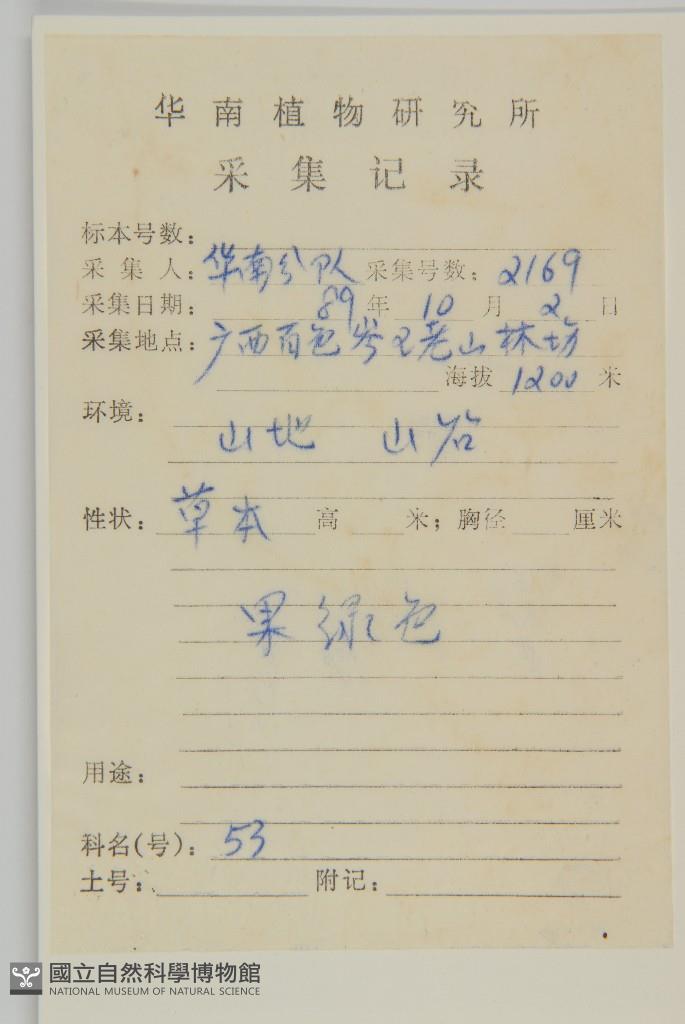 华南植物研究所
采集记录
标本号数：
采集人：华南分队 采集号数：2169
采集日期：89年10月2日
采集地点：广西百色岑王老山林场
海拔 1200 米
环境：
山地 山谷
性状：草本 高 米；胸径 厘米
果绿色
用途：
科名(号)：53
土号： 附记：
國立自然科學博物館
NATIONAL MUSEUM OF NATURAL SCIENCE